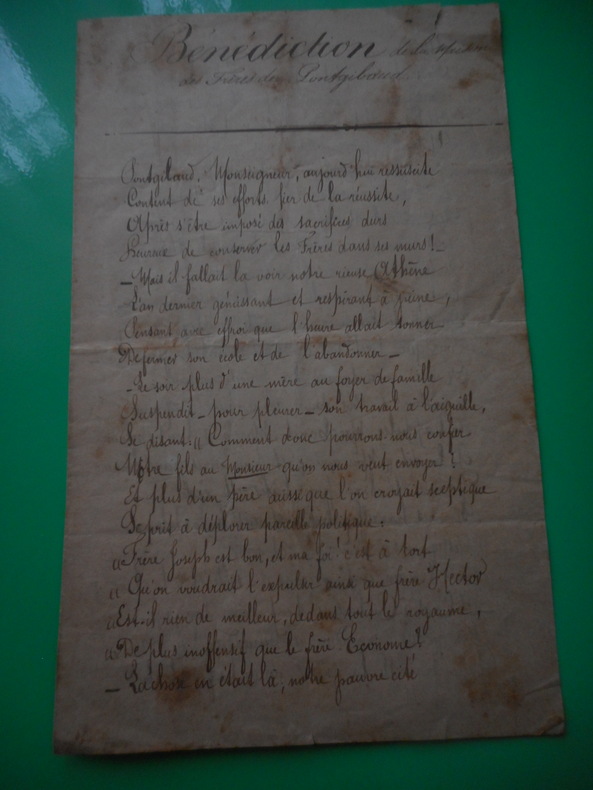 Bénédiction de la Maison
des Frères de Pontgibaud
Pontgibaud, Monseigneur, aujourd'hui ressuscite
Content de ses efforts, fier de la réussite,
Après s'être imposé des sacrifices durs
Heureux de conserver les Frères dans ses murs!_
_Mais il fallait la voir notre rieuse Athène
L'an dernier gémissant et respirant à peine,
Pensant avec effroi que l'heure allait sonner
De fermer son école et de l'abandonner_
_Le soir plus d'une mère au foyer de famille
Suspendit_ pour pleurer_ son travail à l'aiguille,
Se disant: "Comment donc pourrons nous confier
Notre fils au Monsieur qu'on nous veut envoyer!
Et plus d'un père aussi que l'on croyait sceptique
Se prit à déplorer pareille politique:
"Frère Joseph est bon, et ma foi! c'est à tort
"Qu'on voudrait l'expulser ainsi que frère Hector
"Est-il rien de meilleur, dedans tout le royaume,
"De plus inoffensif que le frère Econome?
_ La chose en était là; notre pauvre cité